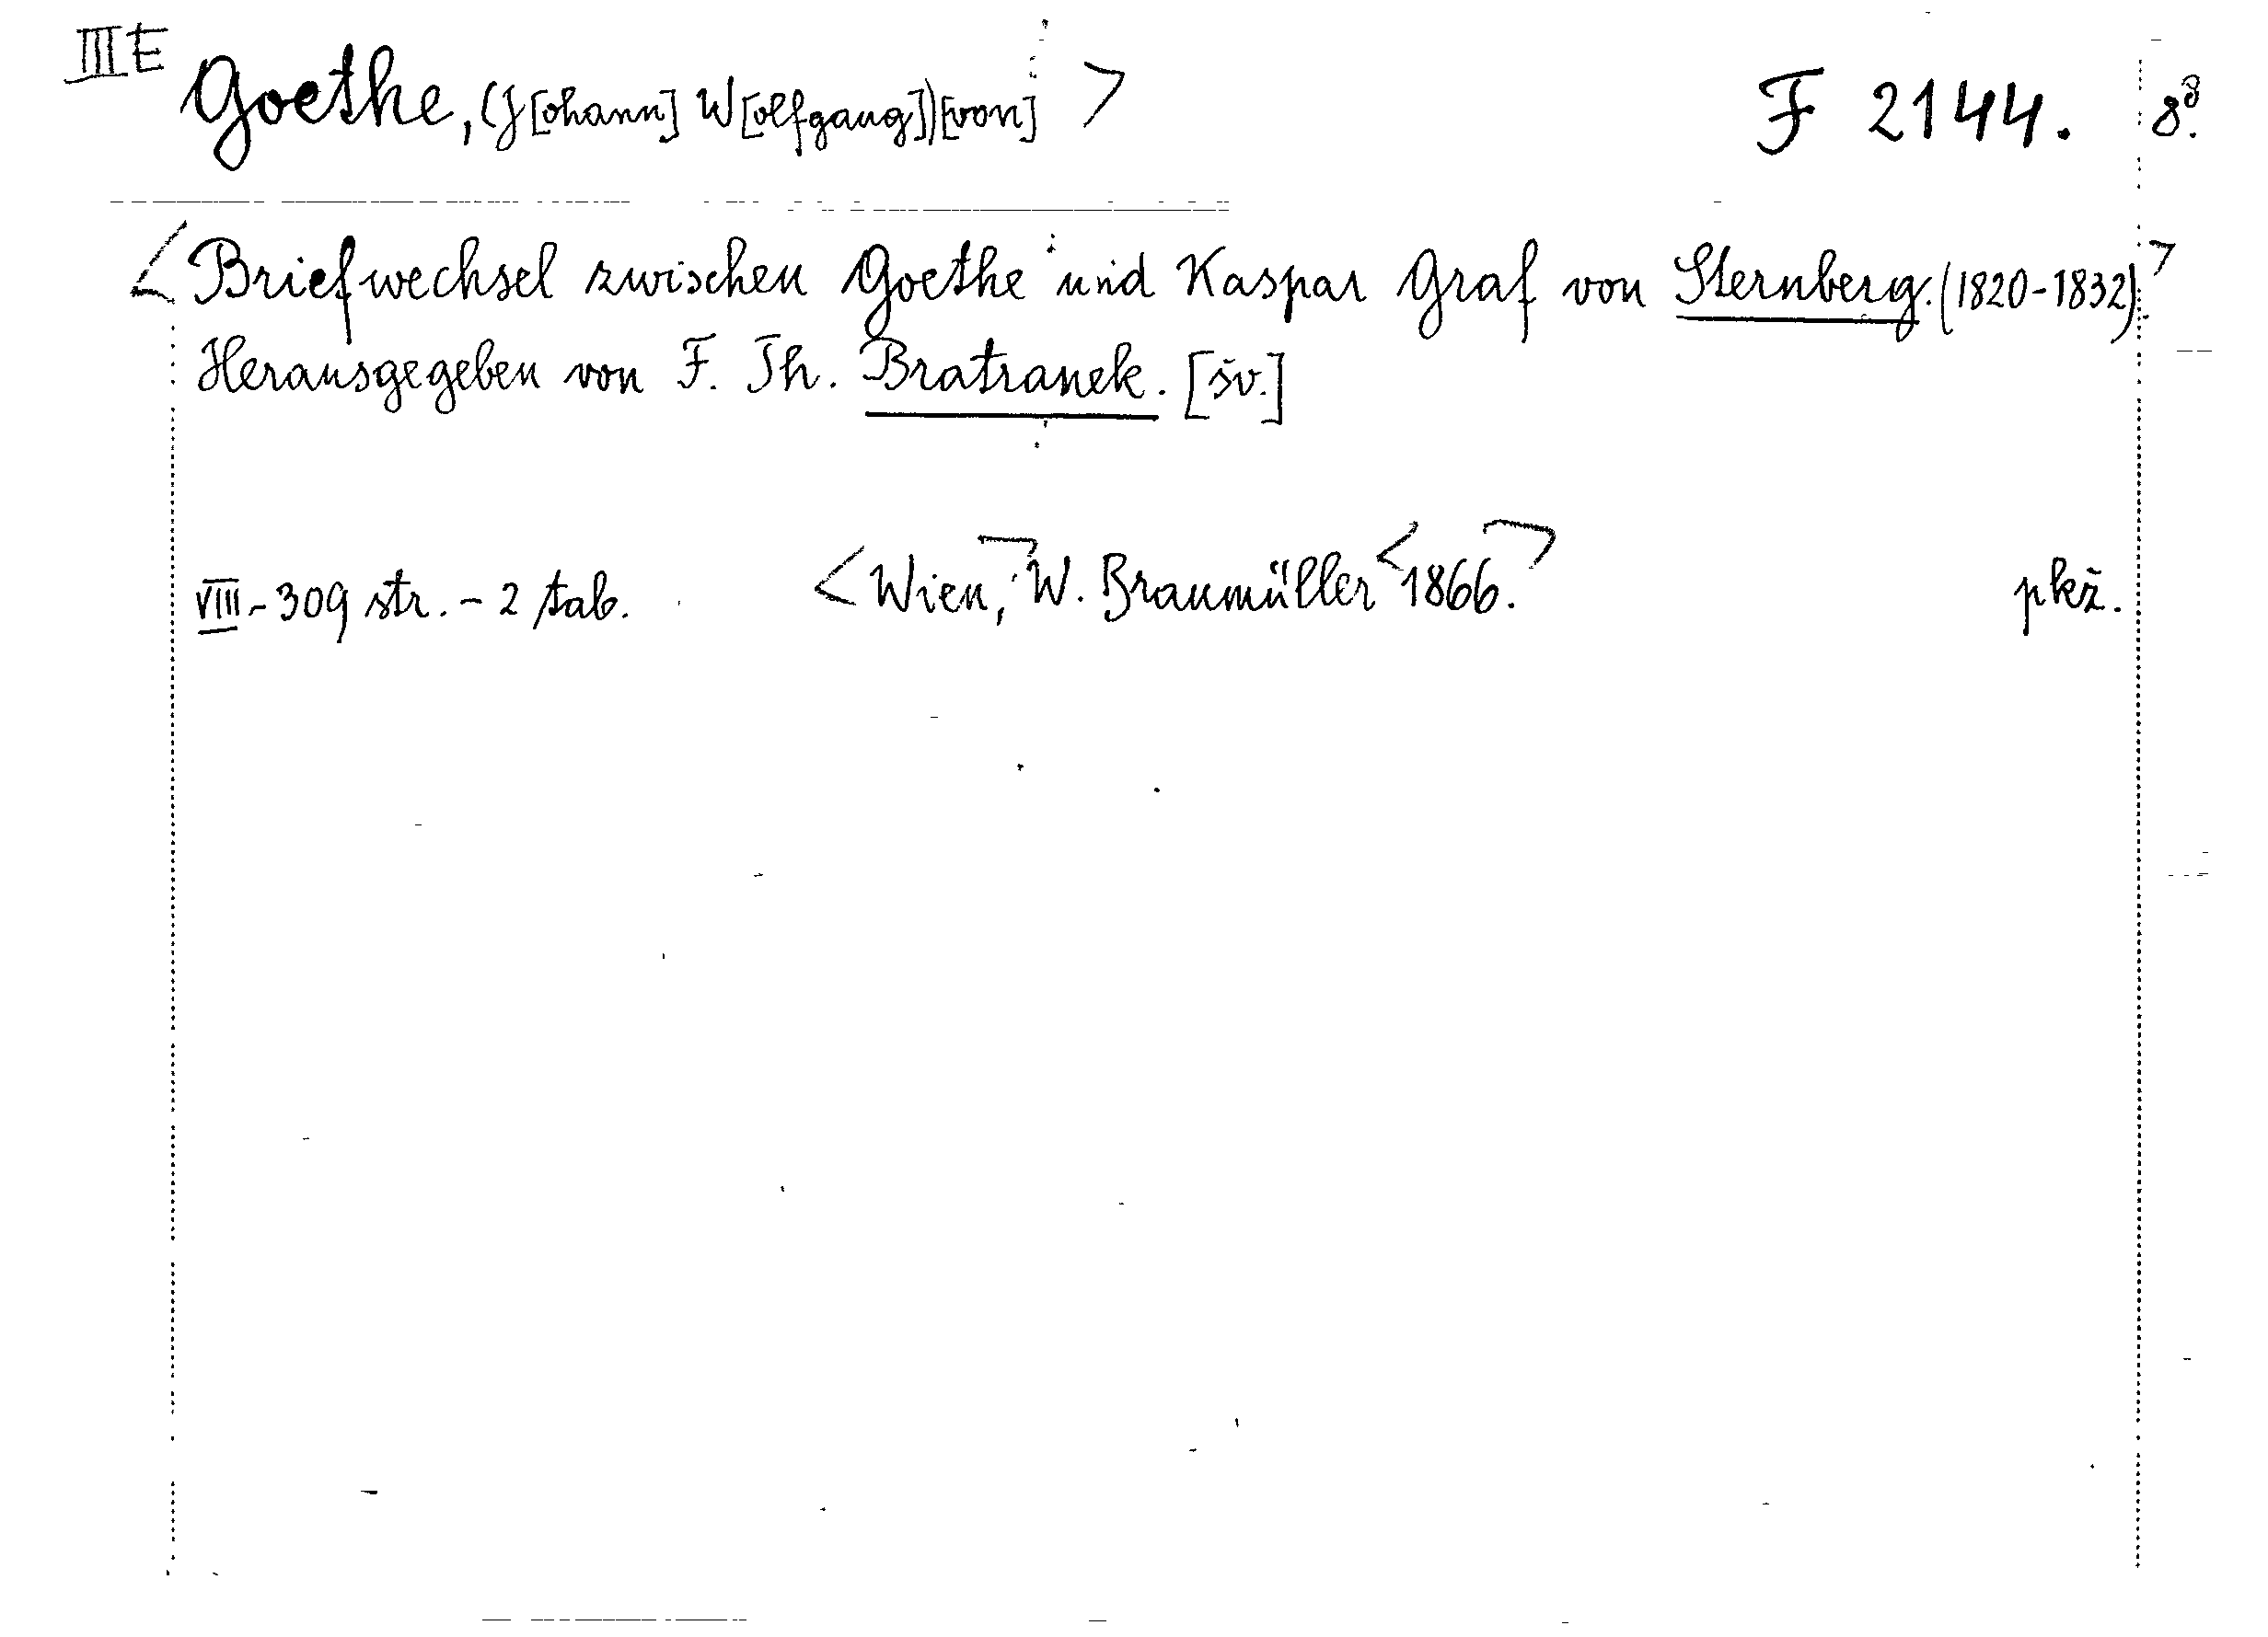 III E Goethe, (J[ohann] W[olfgang])[von] > F 2144. 8°.
<Briefwechsel zwischen Goethe und Kaspar Graf von Sternberg. (1820-1832).>
Herausgegeben von F. Th. Bratranek. [šv.]
VIII - 309 str. - 2 tab. <Wien,> W. Braumüller <1866.> pkž.